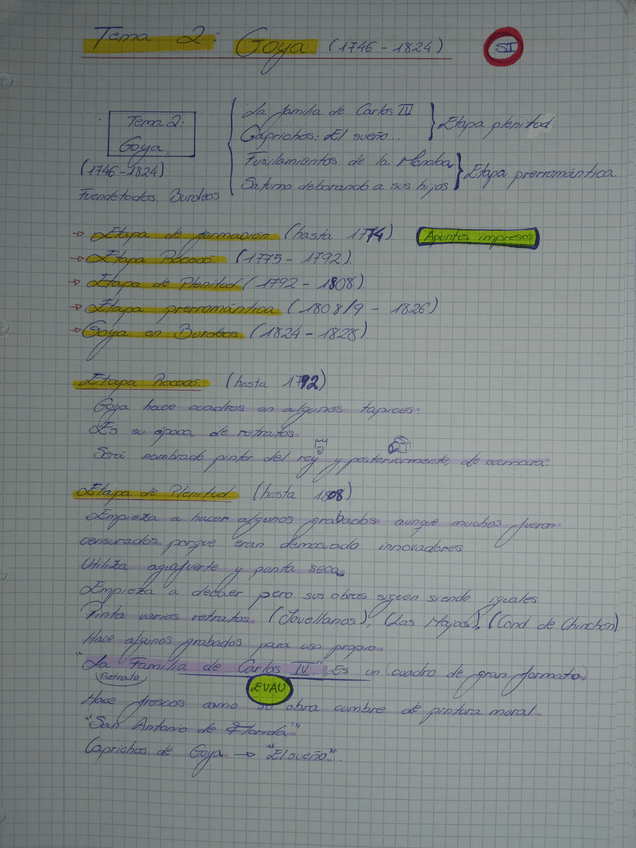 Tema 2: Goya (1746-1824) SI
Tema 2:
Goya.
(1746-1824)
Fuendetodos Burdeos
La familia de Carlos IV
Caprichos: El sueño...
Etapa plenitud
Fusilamientos de la Moncloa
Saturno deborando a sus hijos
Etapa prerromántica
→ Etapa de formación (hasta 1774) Apuntes impresos
→ Etapa Rococó (1775-1792)
→ Etapa de Plenitud (1792-1808)
→ Etapa prerromántica (1808/9-1826)
→ Goya en Burdeos (1824-1828)
Etapa Rococó. (hasta 1792)
Goya hace cuadros en algunos tapices.
Es su época de retratos.
Será nombrado pintor del rey y posteriormente, de cámara.
Etapa de Plenitud (hasta 1808)
Empieza a hacer algunos grabados aunque muchos fueron
censurados porque eran demasiado innovadores
Utiliza aguafuerte y punta seca.
Empieza a decaer pero sus obras siguen siendo iguales
Pinta varios retratos. (Jovellanos), (Las Majas), (Cond. de Chinchón)
Hace algunos grabados para uso propio.
"La Familia de Carlos IV". Es un cuadro de gran formato.
Retrato
EVAU
Hace frescos como su obra cumbre de pintura mural
"San Antonio de Florida"
Caprichos de Goya → "El sueño".